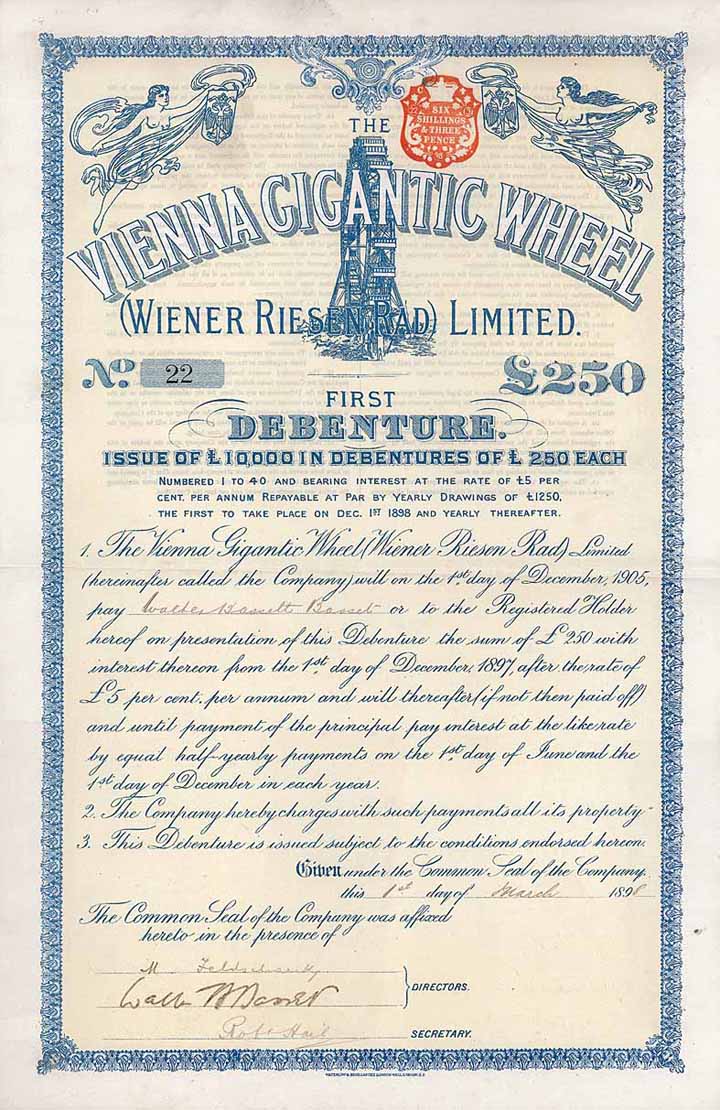 THE
SIX
SHILLINGS
& THREE
PENCE
VIENNA GIGANTIC WHEEL
(WIENER RIESEN RAD) LIMITED.
No. 22 £250
FIRST
DEBENTURE.
ISSUE OF £10,000 IN DEBENTURES OF £250 EACH
NUMBERED 1 TO 40 AND BEARING INTEREST AT THE RATE OF £5 PER
CENT. PER ANNUM REPAYABLE AT PAR BY YEARLY DRAWINGS OF £1250,
THE FIRST TO TAKE PLACE ON DEC. 1ST 1898 AND YEARLY THEREAFTER.
1. The Vienna Gigantic Wheel (Wiener Riesen Rad) Limited
(hereinafter called the Company) will on the 1st day of December, 1905,
pay Walter Bassett Basset or to the Registered Holder
hereof on presentation of this Debenture the sum of £250 with
interest thereon from the 1st day of December, 1897, after the rate of
£5 per cent. per annum and will thereafter (if not then paid off)
and until payment of the principal pay interest at the like rate
by equal half-yearly payments on the 1st day of June and the
1st day of December in each year.
2. The Company hereby charges with such payments all its property
3. This Debenture is issued subject to the conditions endorsed hereon.
Given under the Common Seal of the Company.
this 1st day of March 1898
The Common Seal of the Company was affixed
hereto in the presence of
M.
Walter B Basset
DIRECTORS.
SECRETARY.